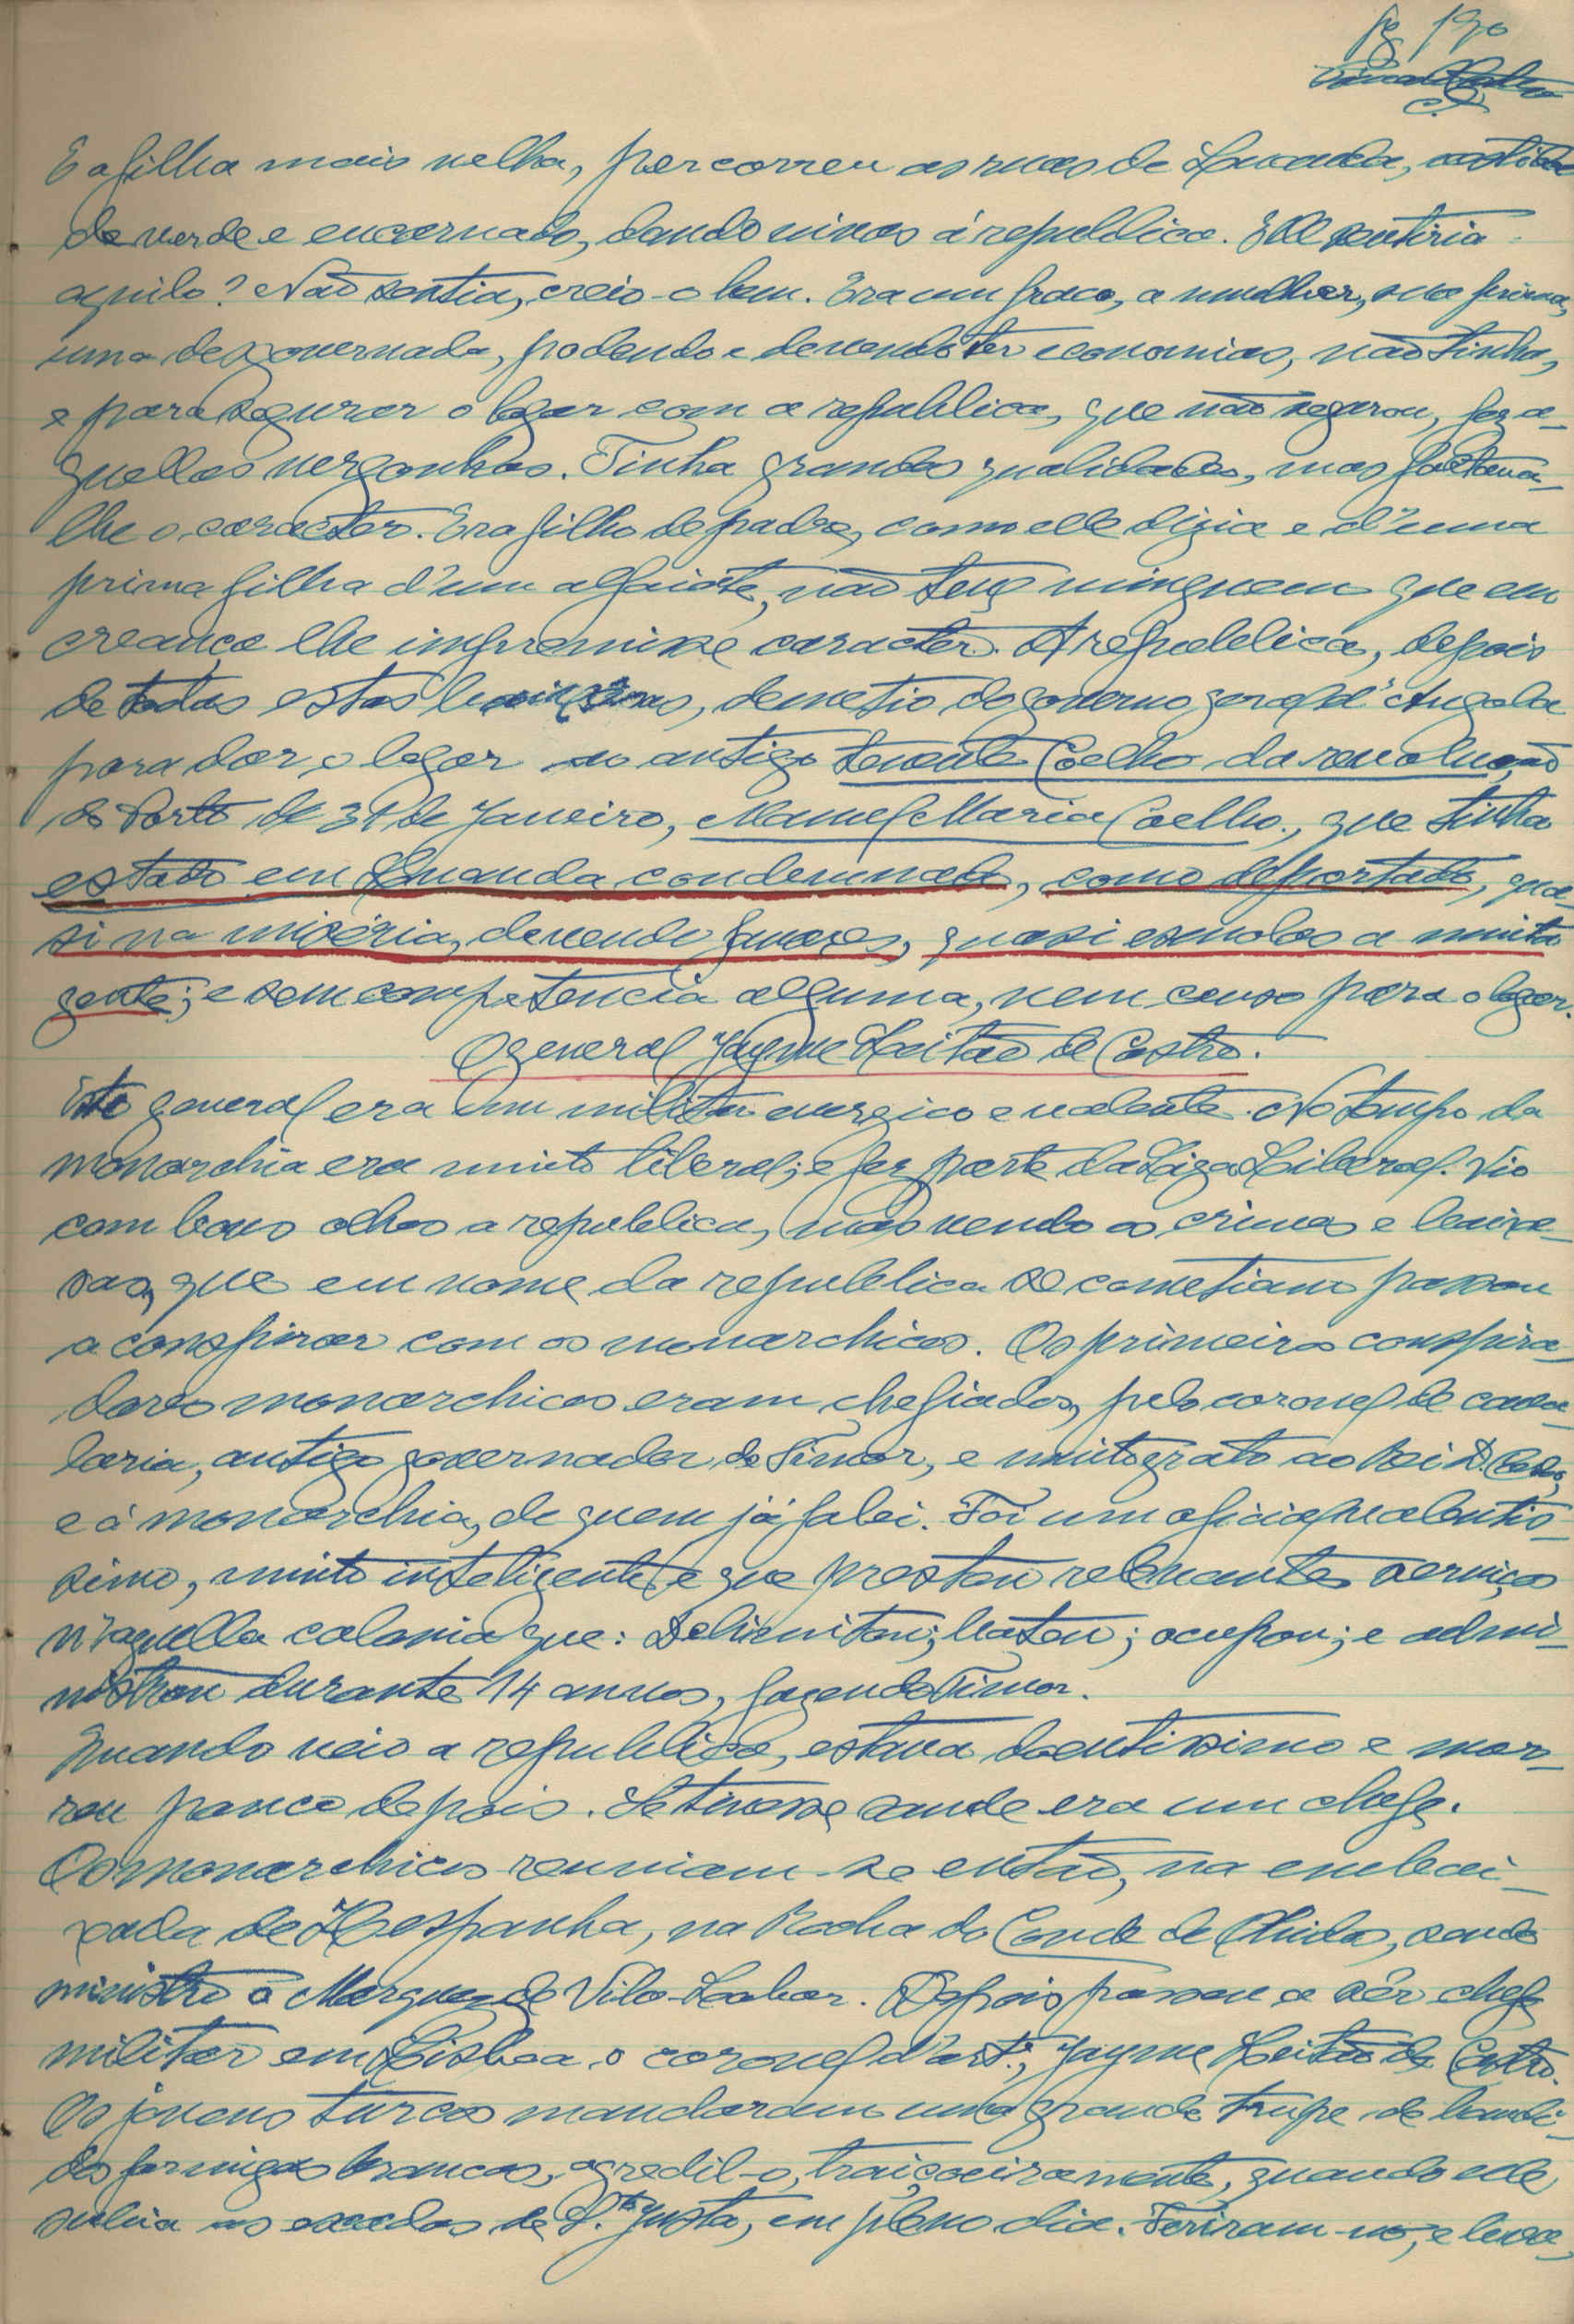 pg 190
E a filha mais velha, percorreu as ruas de Luanda, vestida
de verde e encarnado, dando vivas á republica. Elle sentiria
aquilo? Não sentia, creio-o bem. Era um fraco, a mulher, sua prima,
uma desgovernada, podendo e devendo ter economias, não tinha,
e para segurar o logar com a republica, que não segurou, fez a-
quellas vergonhas. Tinha grandes qualidades, mas faltava-
lhe o caracter. Era filho de padre, como elle dizia e d'uma
prima filha d'um alfaiate, não teve ninguem que em
creança lhe imprimisse caracter. A republica, depois
de todas estas baixezas, demetio do governo geral d'Angola
para dar o logar ao antigo tenente Coelho da revolução
do Porto de 31 de Janeiro, Manuel Maria Coelho, que tinha
estado em Luanda condemnado, como deportado, qua-
si na miséria, devendo favores, quasi esmolas a muita
gente; e sem competencia alguma, nem curso para o logar.
O general Jayme Leitão de Castro.
Este general era um militar energico e valente. No tempo da
monarchia era muito liberal; e fez parte da Liga Liberal. Vio
com bons olhos a republica, mas vendo os crimes e baixe-
sas, que em nome da republica se cometiam passou
a conspirar com os monarchicos. Os primeiros conspira-
dores monarchicos eram chefiados, pelo coronel de caval-
laria, antigo governador de Timor, e muito grato ao Rei D. Carlos,
e á monarchia, de quem já falei. Foi um oficial valentis-
simo, muito inteligente, e que prestou relevantes serviços
n'aquella colonia que: Delimitou; bateu; ocupou; e admi-
nistrou durante 14 annos, fazendo Timor.
Quando veio a republica, estava doentissimo e mor-
reu pouco depois. Se tivesse saude era um chefe.
Os monarchicos reuniam-se então, na embai-
xada de Hespanha, na Rocha do Conde de Obidos, sendo
ministro o Marquez de Vila-Lobar. Depois passou a sêr chefe
militar em Lisboa o coronel d'art.ª, Jayme Leitão de Castro.
Os jovens turcos mandaram uma grande trupe de bandi-
dos formigas brancas, agredil-o, traiçoeiramente, quando elle
subia as escadas de S.ta Justa, em pleno dia. Feriram-no, e leva-